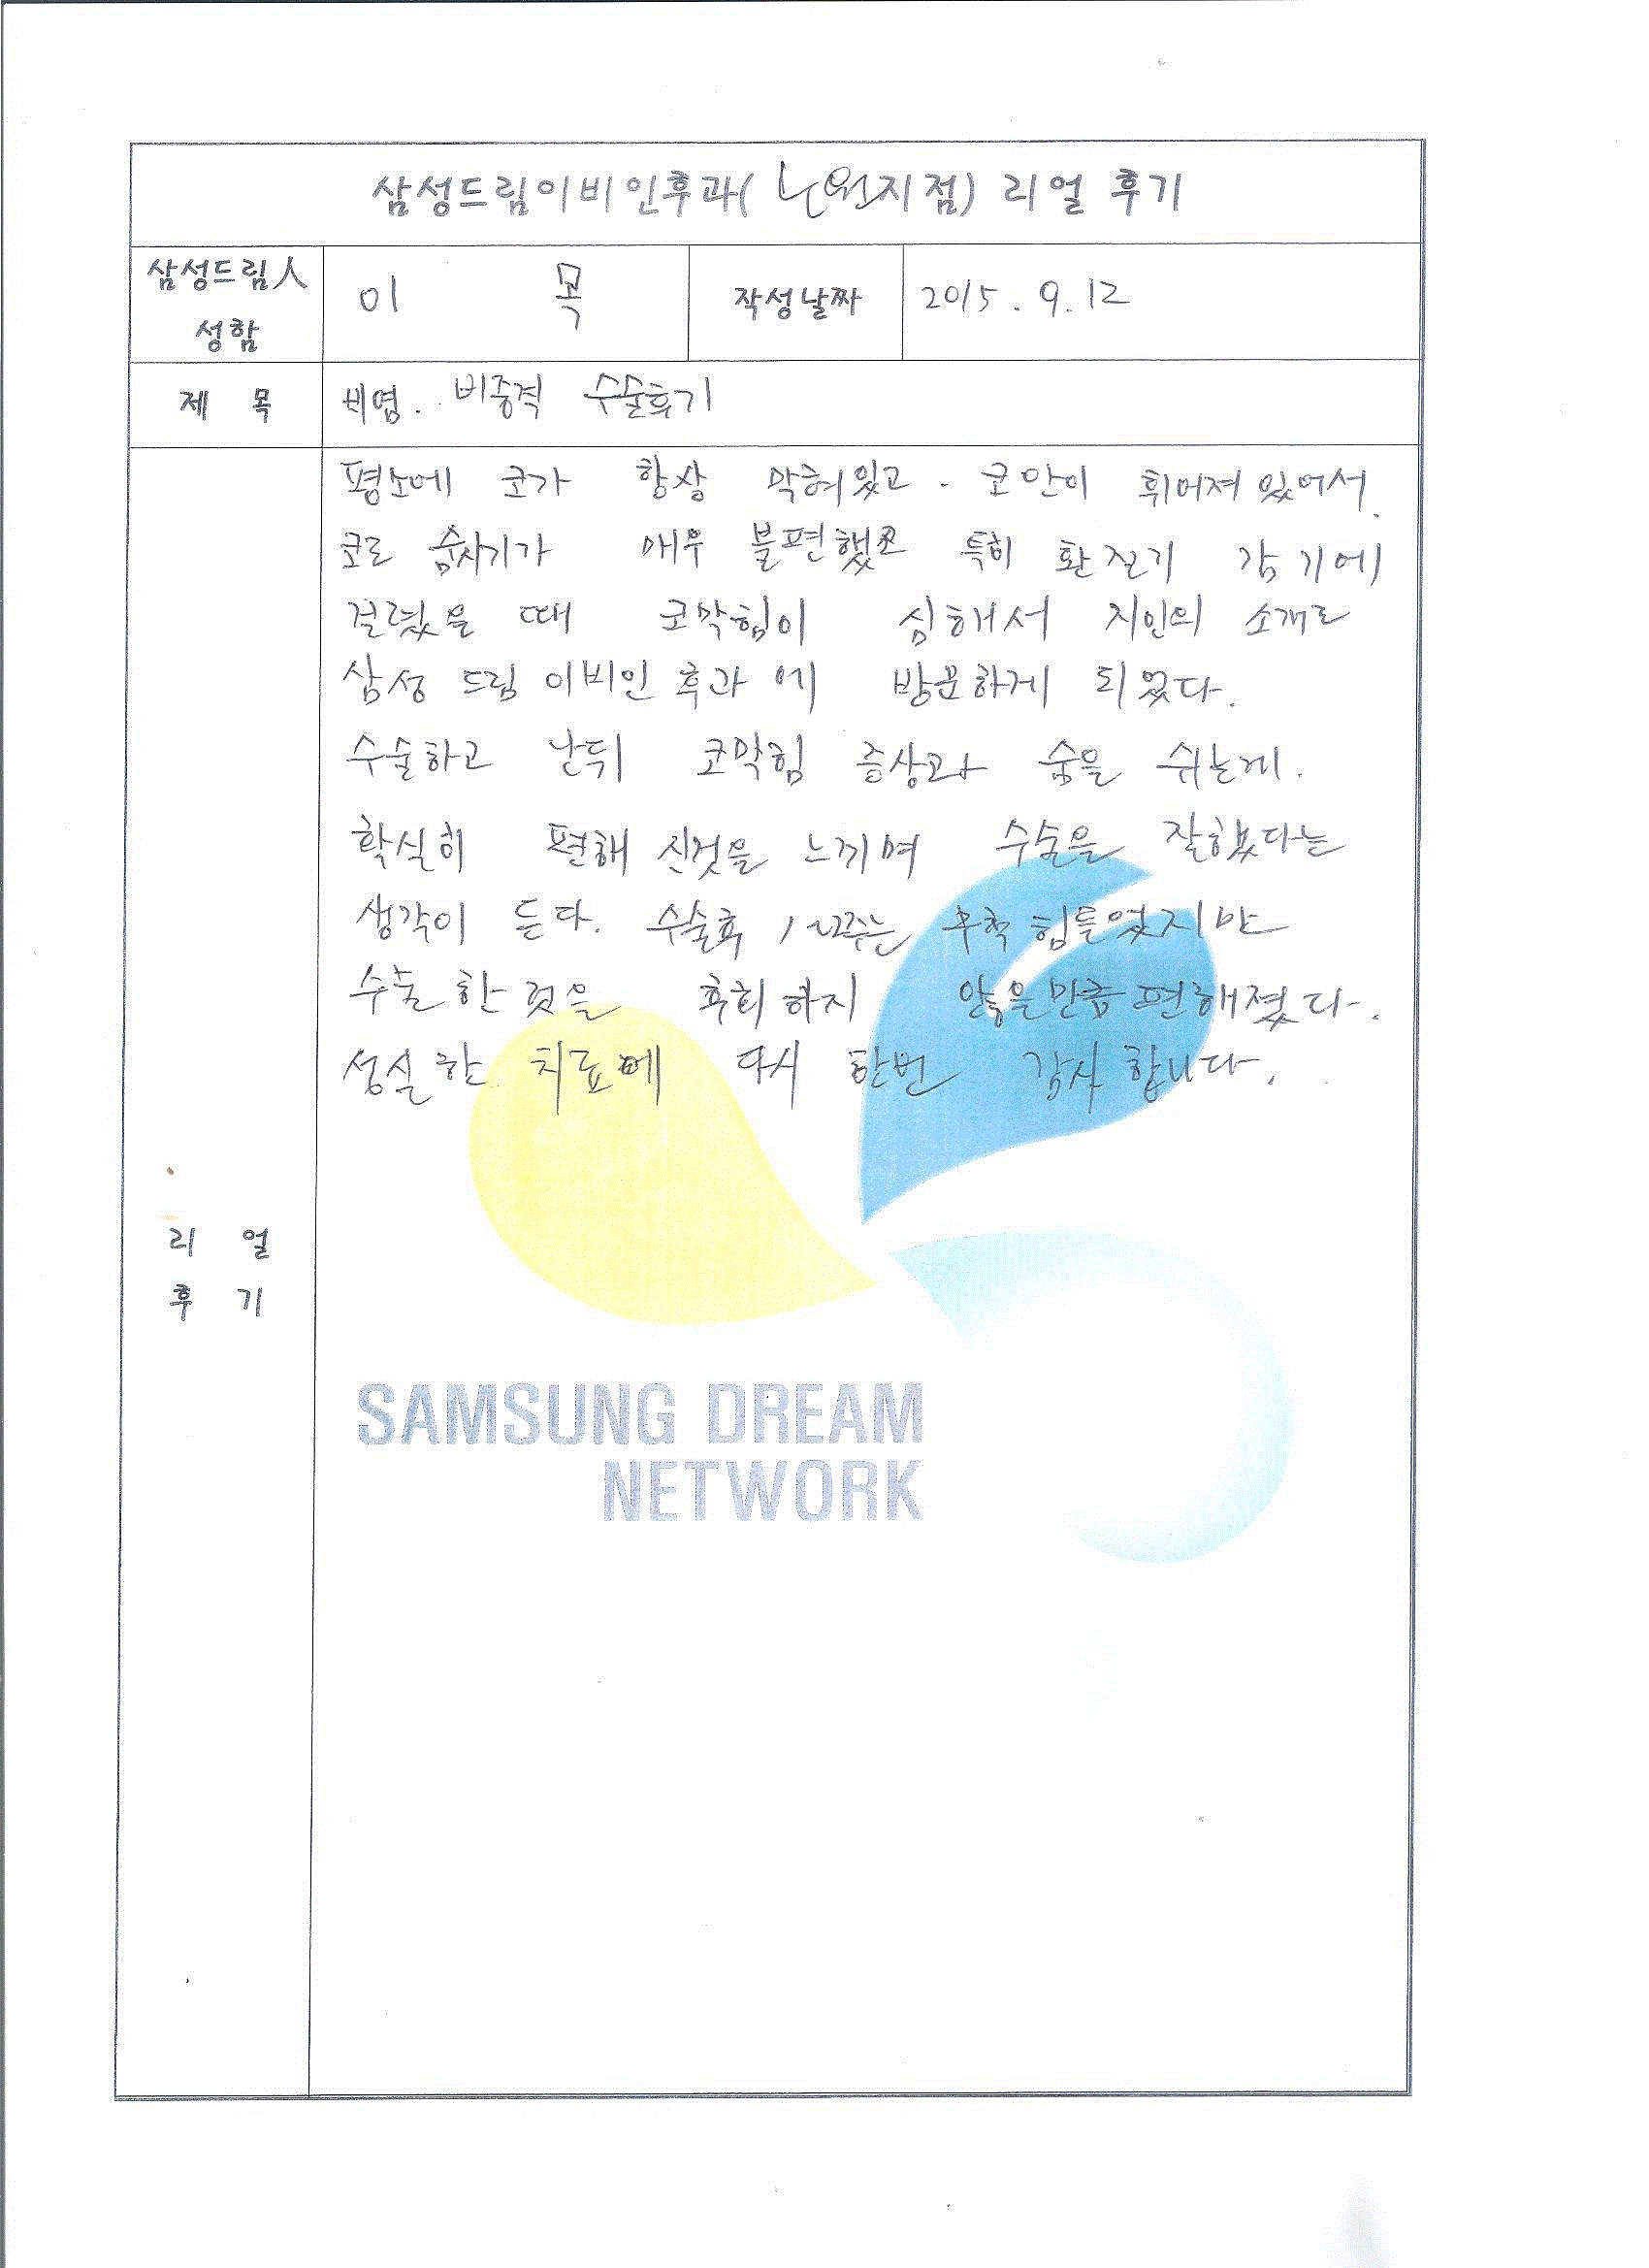 삼성드림이비인후과( 노원지점) 리얼 후기
삼성드림人 성함
이 목
작성날짜
2015. 9. 12
제 목
비염.. 비중격 수술후기
평소에 코가 항상 막혀있고. 코안이 휘어져 있어서
코로 숨쉬기가 매우 불편했고 특히 환절기 감기에
걸렸을 때 코막힘이 심해서 지인의 소개로
삼성 드림 이비인 후과에 방문하게 되었다.
수술하고 난뒤 코막힘 증상과 숨을 쉬는게.
확실히 편해 진것을 느끼며 수술을 잘했다는
생각이 든다. 수술후 1~2주는 무척 힘들었지만
수술 한 것을 후회 하지 않을만큼 편해졌다.
성실한 치료에 다시 한번 감사 합니다.
리 얼
후 기
SAMSUNG DREAM
NETWORK